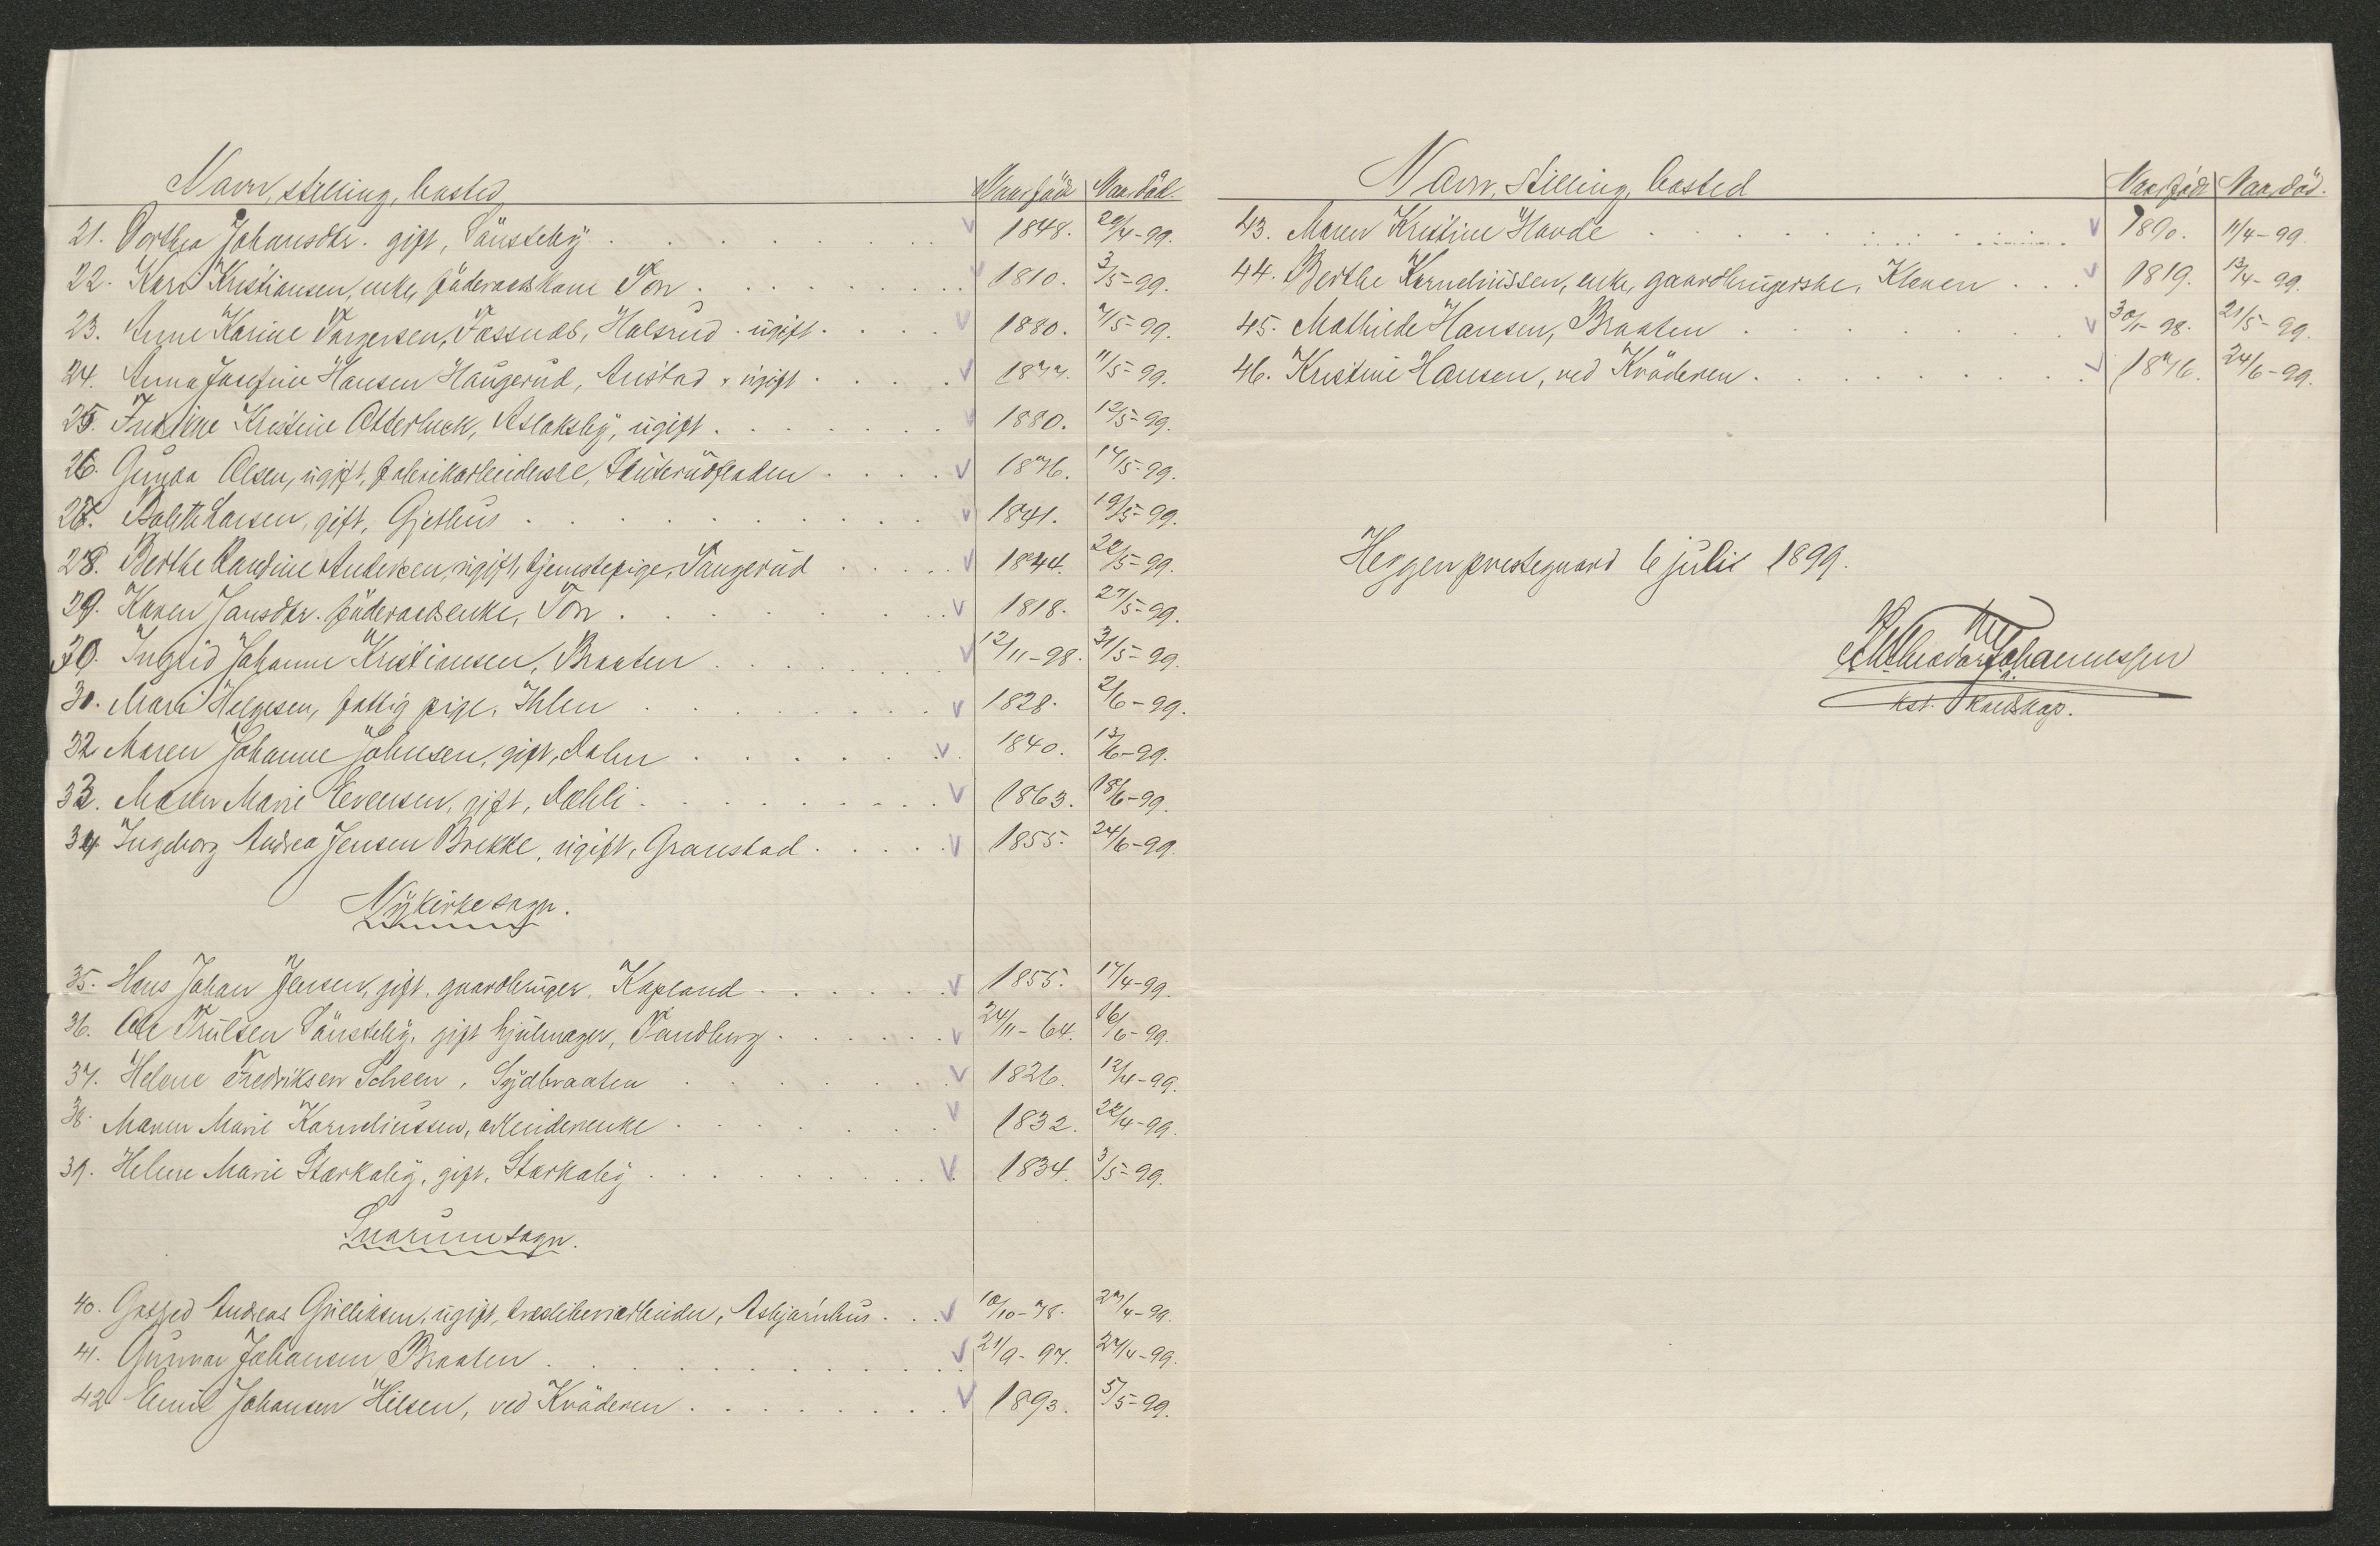 Navn, stilling, bosted Naar född Naar död.
21. Dorthea Johansdtr. gift, Sönsteby 1848. 29/4-99.
22. Kari Kristiansen, enke, föderaadskone Ton 1810. 3/5-99.
23. Anne Karine Torgersen, Fossnæs, Halsrud. ugift. 1880. 7/5-99.
24. Anna Josefine Hansen Haugerud, ugift 1877. 11/5-99.
25. Kristine Otterbeck, Aslaksby, ugift. 1880. 12/5-99.
26. Gunda Olsen, ugift, fabrikarbeiderske, 1876. 17/5-99.
27. Larsen, gift, Gjethus 1841. 19/5-99.
28. Berthe Randine Andersen, ugift, tjenestepige, Tangerud 1844. 22/5-99.
29. Karen Jansdtr. föderaadsenke, Ton 1818. 27/5-99.
30. Ingrid Johanne Kristiansen, Braaten 12/11-98. 31/5-99.
30. Mari Helgesen, fattig pige, Ihlen 1828. 2/6-99.
32 Maren Johanne Johnsen, gift, Dalen 1840. 13/6-99.
33. Maren Marie Evensen, gift, Dæhli 1863. 18/6-99.
34 Ingeborg Andrea Jensen Brekke, ugift, Granstad 1855. 24/6-99.
Nykirke sogn.
35. Hans Johan Jensen, gift, gaardbruger, Kopland 1855. 17/4-99.
36. Ole Trulsen Sönsteby, gift hjulmager, Sandberg 24/11-64. 16/6-99.
37. Helene Fredriksen Scheen, Sydbraaten 1826. 12/4-99.
38. Maren Marie Korneliussen, arbeiderenke 1832. 22/4-99.
39. Helene Marie Størkaby, gift, Størkaby 1834. 3/5-99.
Snarum sogn.
40. Andreas Gulliksen, ugift, træsliberiarbeider, Asbjørnhus 10/10-78. 27/4-99.
41. Gunnar Johansen Braaten 21/9-97. 27/4-99.
42 Emil Johansen Hilsen, ved Kröderen 1893. 5/5-99.
Navn, Stilling, bosted Naar född Naar död.
43. Maren Kristine Hovde 1890. 11/4-99.
44. Berthe Korneliussen, enke, gaardbrugerske, Kleven 1819. 13/4-99.
45. Mathilde Hansen, Braaten 30/1-98. 21/5-99.
46. Kristine Hansen, ved Kröderen 1876. 24/6-99.
Heggen prestegaard 6 juli 1899.
Theodor Johannessen
kst. Kaldskap.